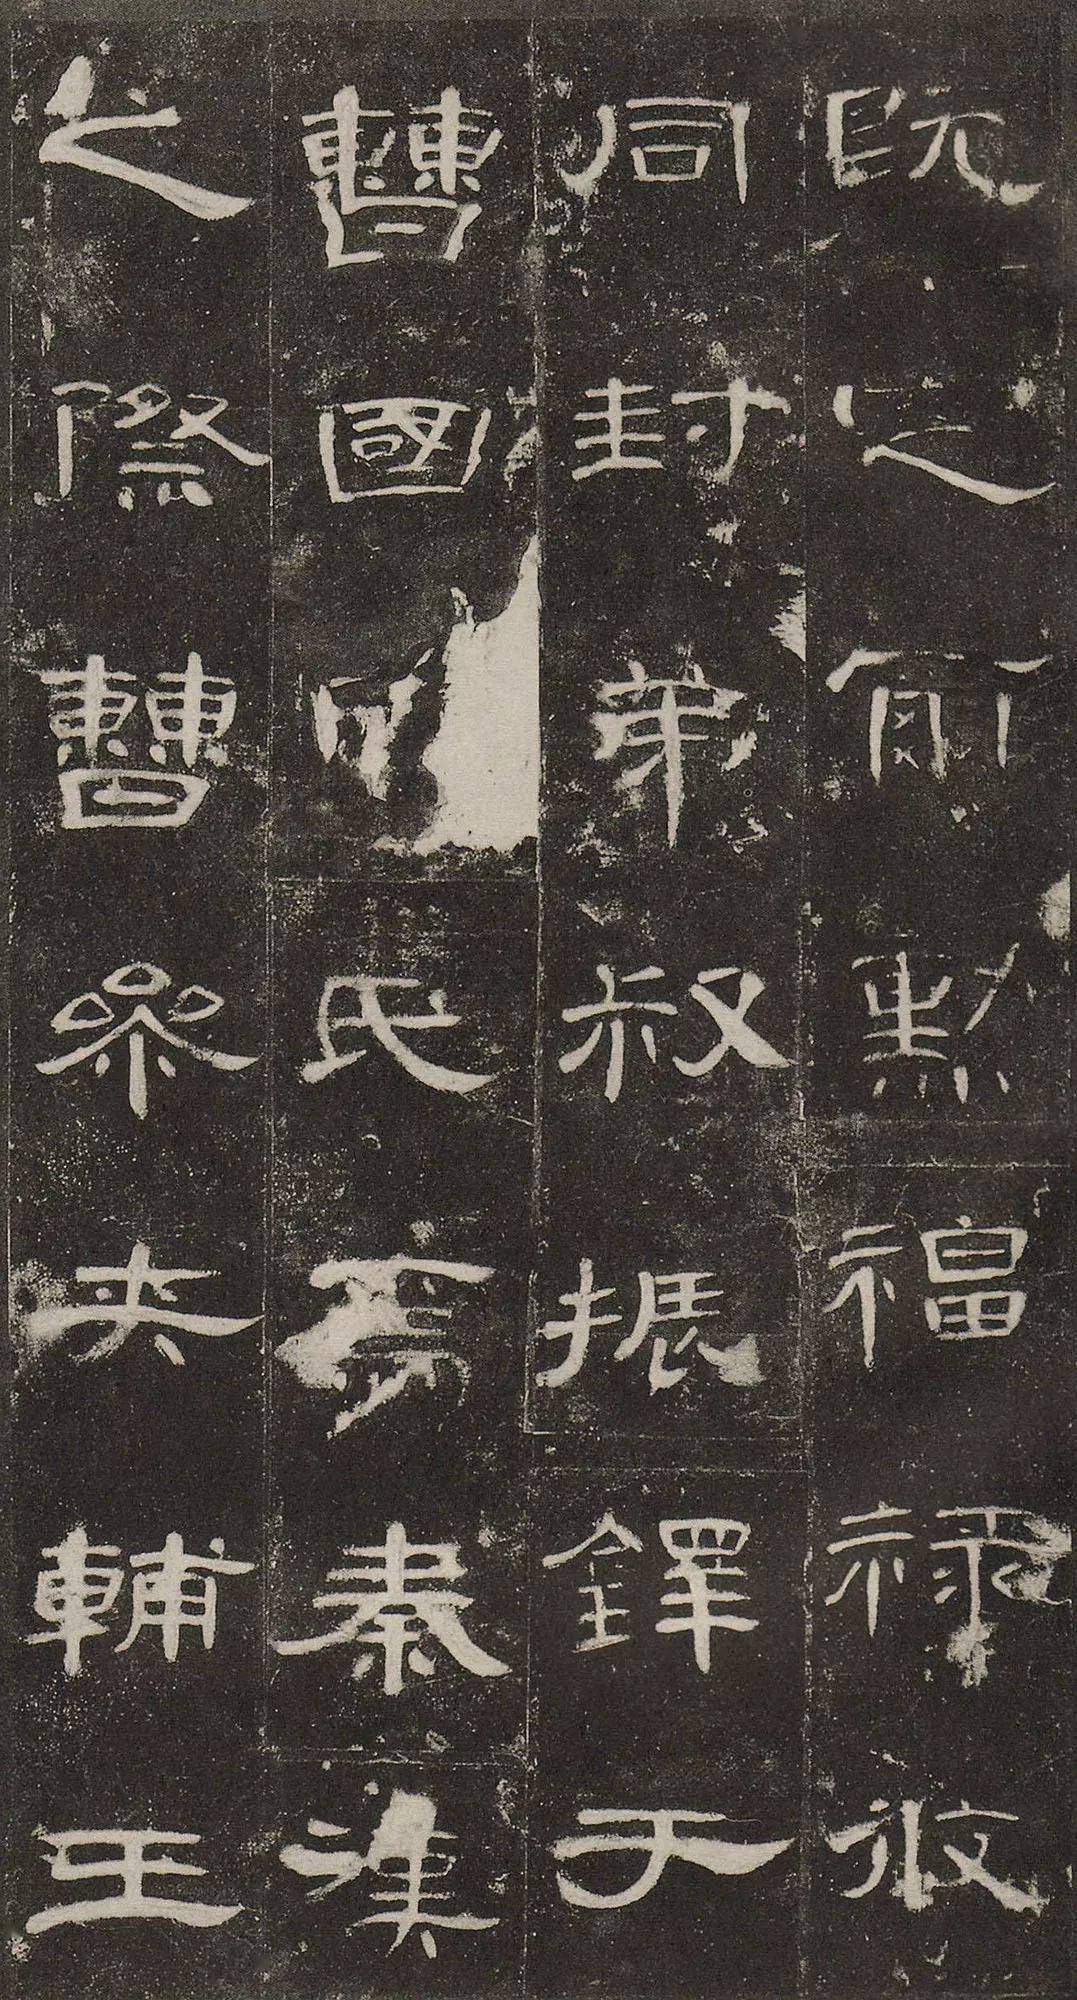 既之前勲福祿攸
同封弟叔振鐸于
曹國囙氏焉秦漢
之際曹參夾輔王